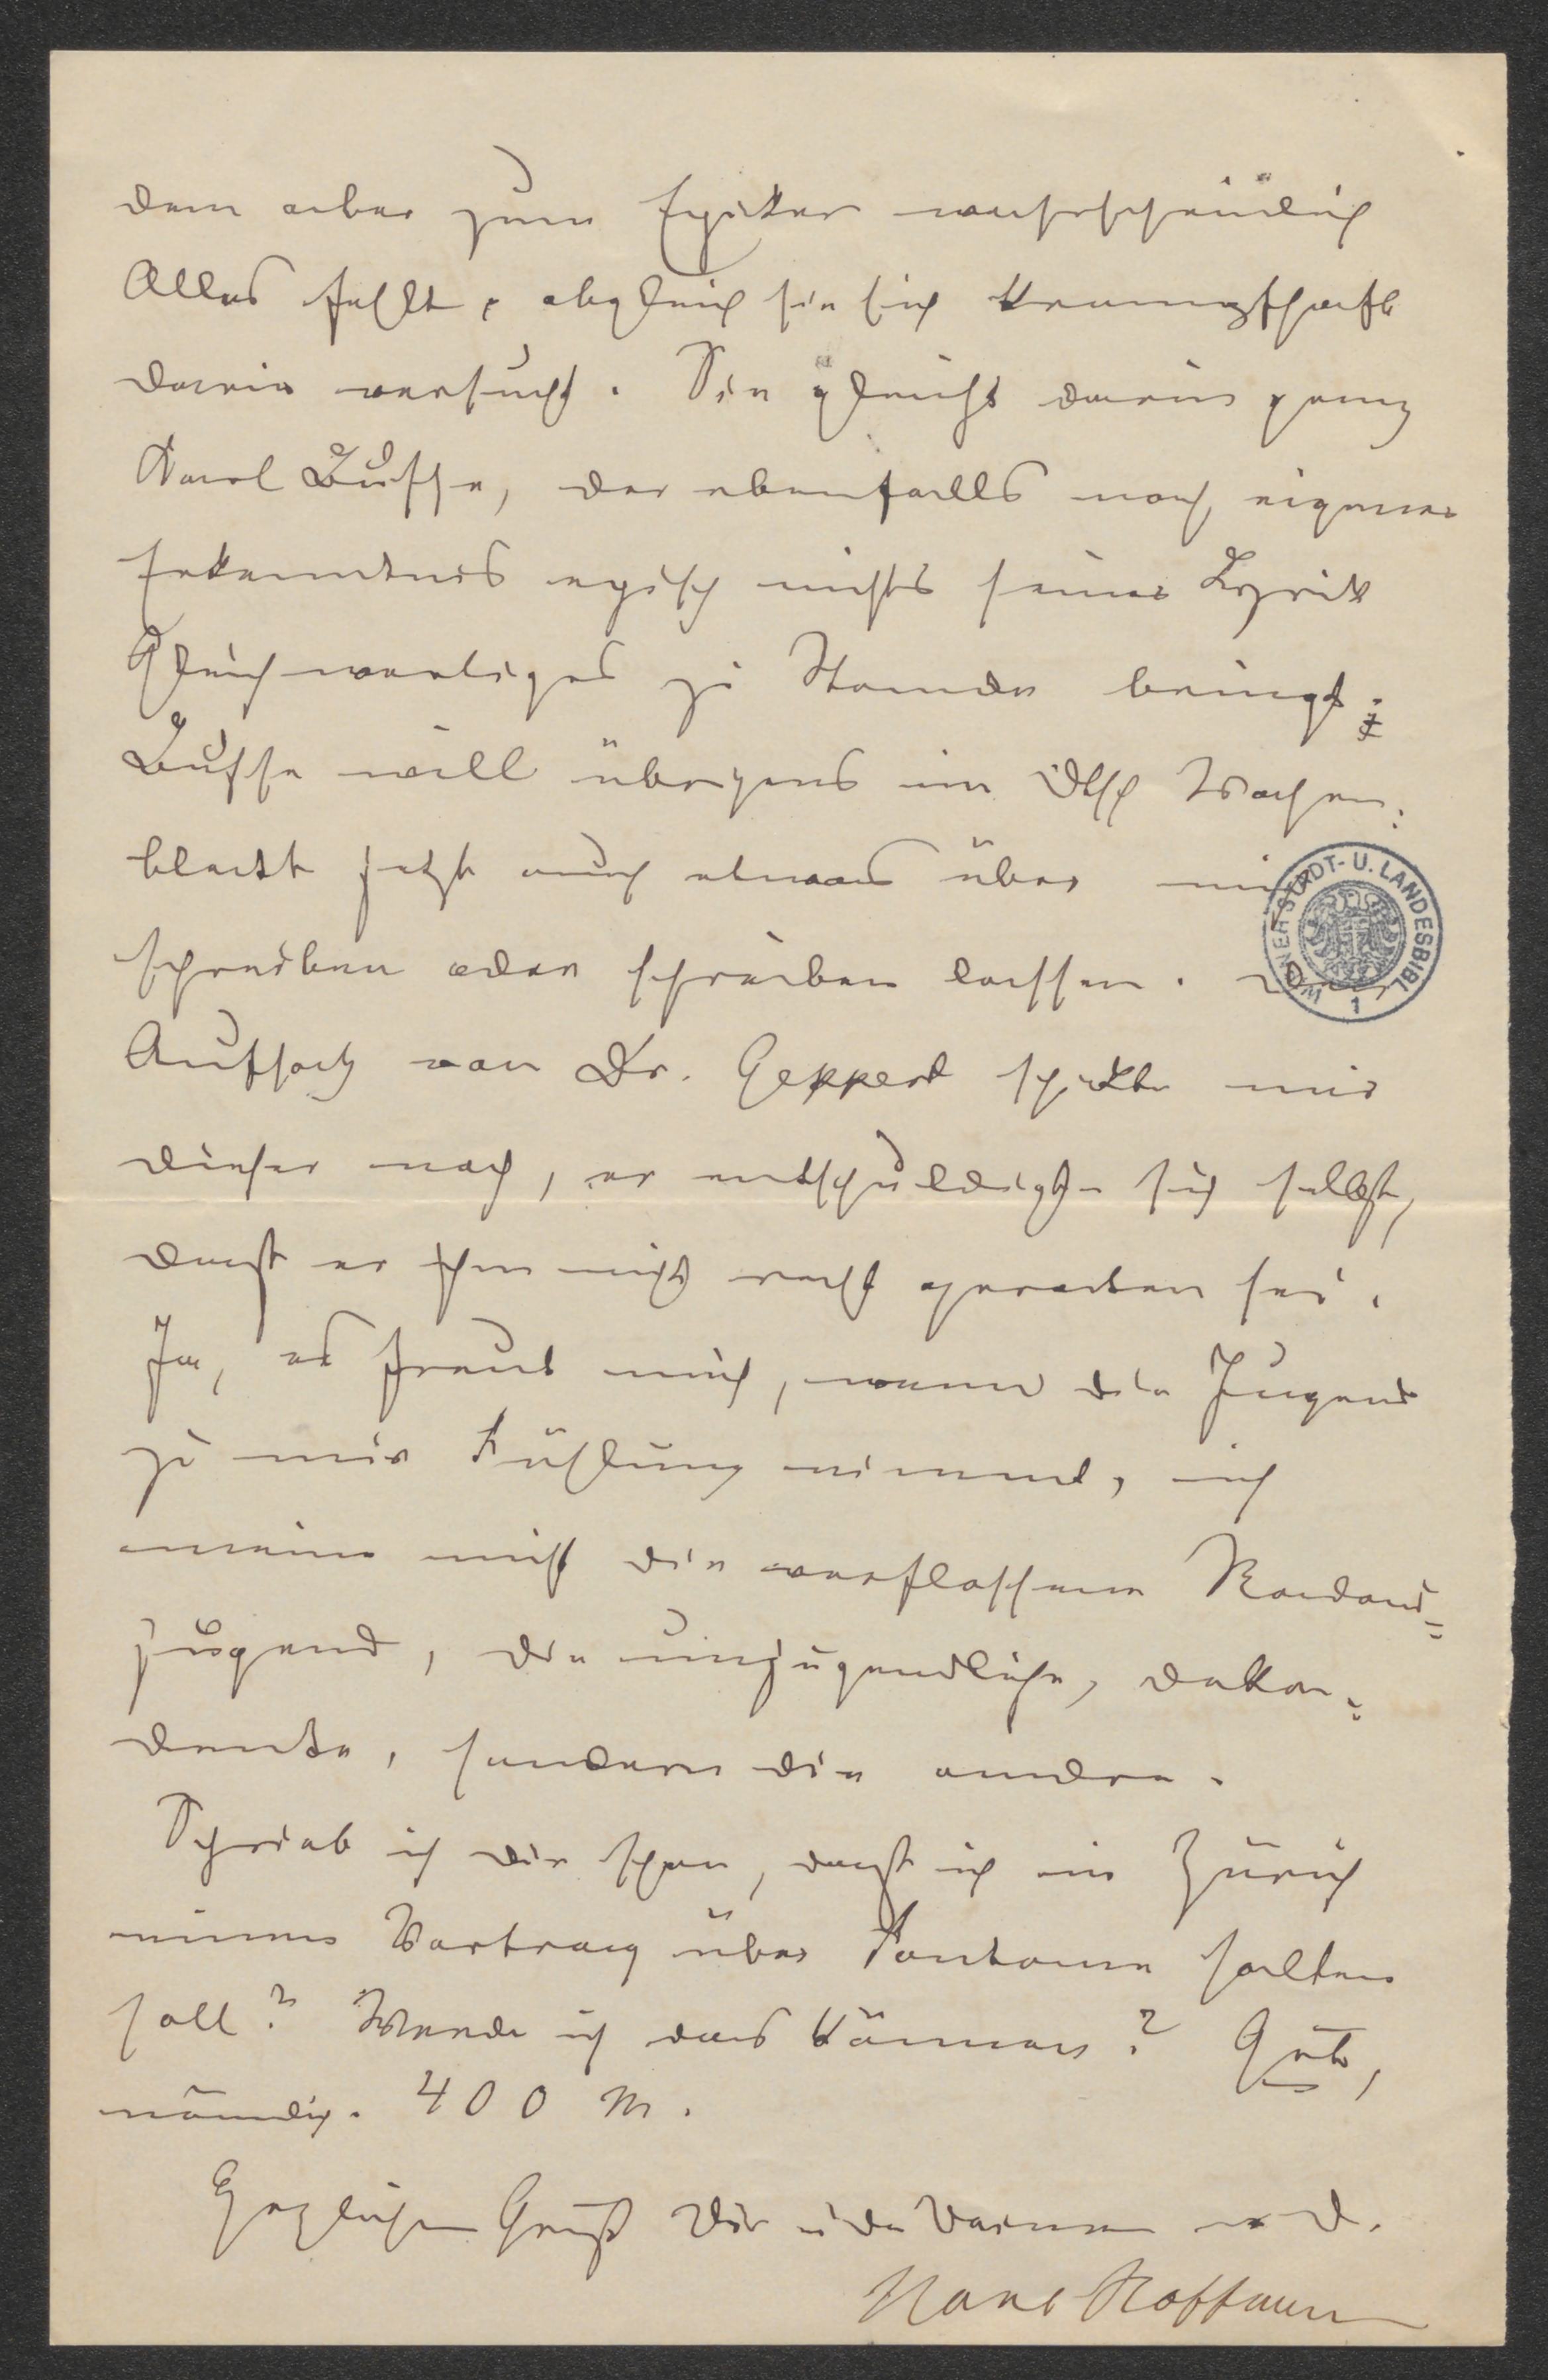 dem aber zum Epiker wahrscheinlich
Alles fehlt, obgleich sie sich krampfhaft
darin versucht. Sie gleicht darin ganz
Karl Busse, der ebenfalls nach eigener
Erkenntnis episch nichts seiner Lyrik
Gleichwertiges zu Stande bringt.
Busse will übrigens im Dtsch Wochen-
blatt jetzt auch etwas über mich
schreiben oder schreiben lassen. Den
Aufsatz von Dr. Geppert schickte mir
dieser nach, er entschuldigte sich selbst,
daß er ihm nicht recht geraten sei.
Ja, es freut mich, wenn die Jugend
zu mir Fühlung nimmt, ich
meine nicht die verflossene Radau-
jugend, die unjugendliche, deka-
dente, sondern die andre.
Schrieb ich dir schon, daß ich in Zürich
einen Vortrag über Fontane halten
soll? Werde ich das können? Gut,
nämlich. 400 M.
Herzlichen Gruß Dir u. den Deinen v. D.
Hans Hoffmann
WIENER STADT- U. LANDESBIBL.
1